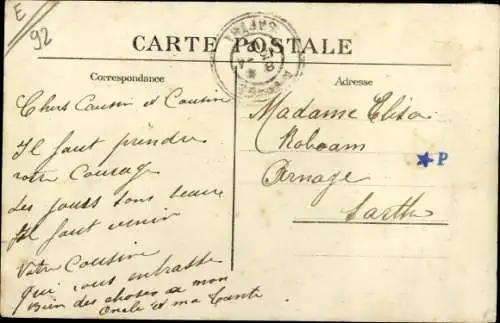 E
92
CARTE POSTALE
Correspondance
Adresse
Chers Cousin et Cousine
Il faut prendre
votre Courage
des jours sons beaux
Il faut venir
Votre Cousine
qui vous embrasse
Bien des choses a mon
Oncle et ma Tante
Madame Elisa
Roboam
Arnage
Sarthe
★P